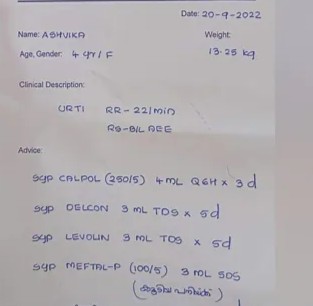 Date: 20-9-2022
Name: ASHVIKA
Weight:
Age, Gender: 4 yr / F
13.25 kg
Clinical Description:
URTI RR-22/min
RS-B/L AEE
Advice:
syp CALPOL (250/5) 4 ML Q6H x 3 d
syp DELCON 3 ML TDS x 5d
syp LEVOLIN 3 ML TDS x 5d
syp MEFTAL-P (100/5) 3 ML SOS